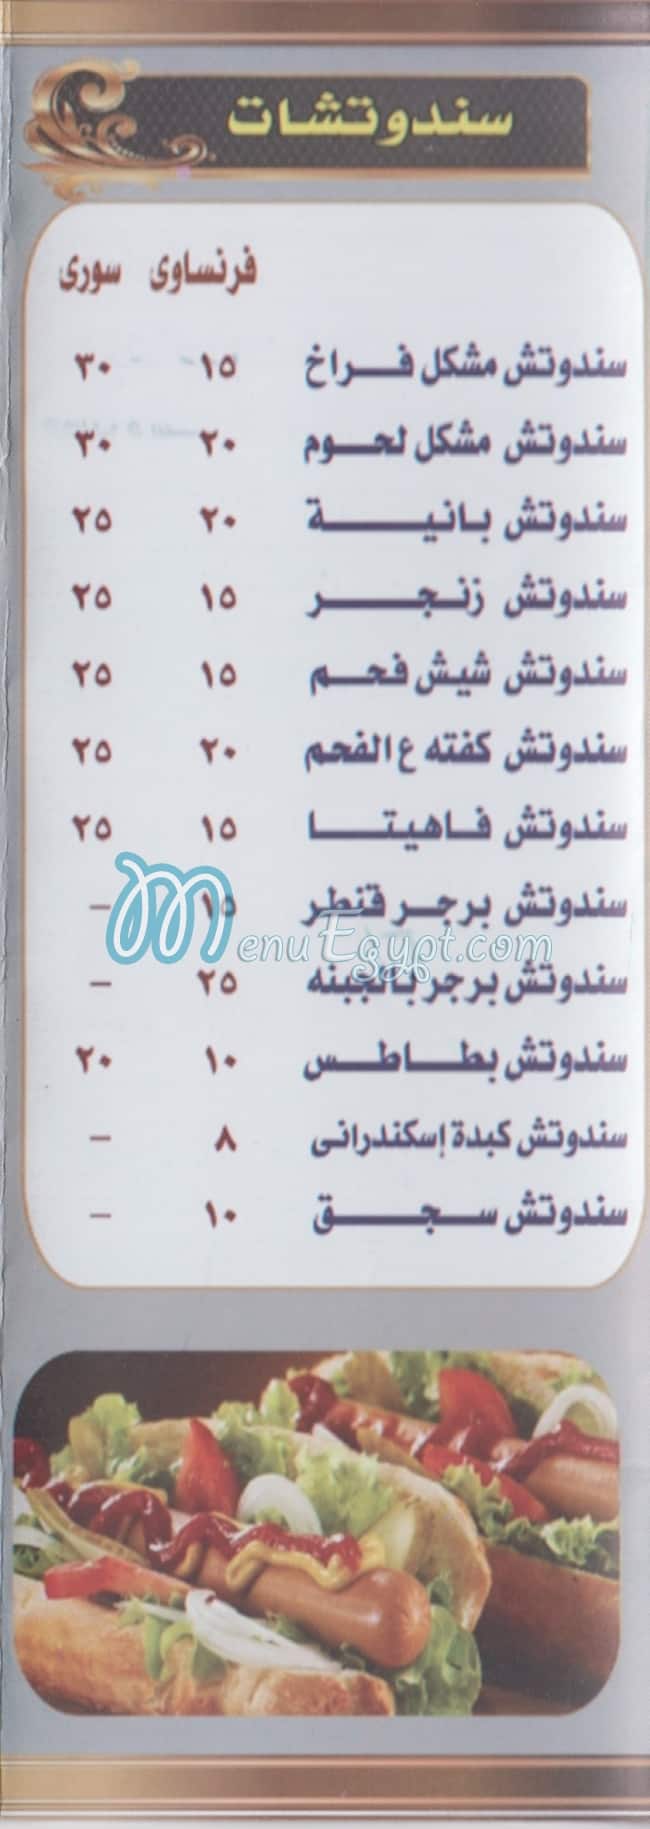 سندوتشات
فرنساوى سورى
سندوتش مشكل فراخ ١٥ ٣٠
سندوتش مشكل لحوم ٢٠ ٣٠
سندوتش بانية ٢٠ ٢٥
سندوتش زنجر ١٥ ٢٥
سندوتش شيش فحم ١٥ ٢٥
سندوتش كفته ع الفحم ٢٠ ٢٥
سندوتش فاهيتا ١٥ ٢٥
سندوتش برجر قنطر ١٥ –
MenuEgypt.com
سندوتش برجر بالجبنه ٢٥ –
سندوتش بطاطس ١٠ ٢٠
سندوتش كبدة إسكندرانى ٨ –
سندوتش سجق ١٠ –